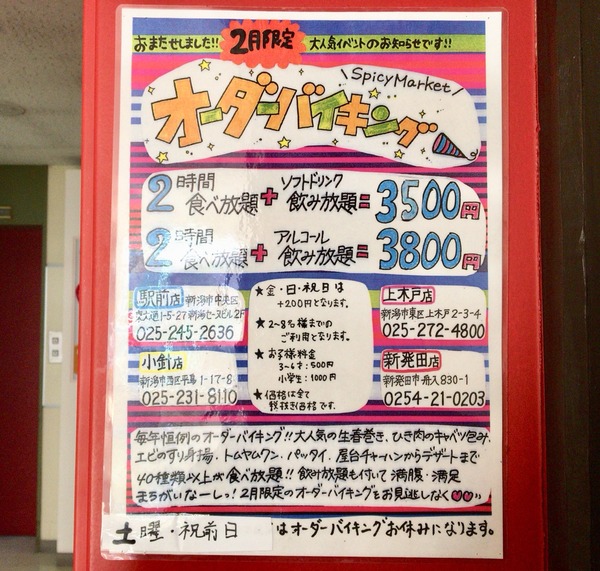 おまたせしました!! 2月限定 大人気イベントのお知らせです!!
\SpicyMarket/
オーダーバイキング
2時間食べ放題+ソフトドリンク飲み放題=3500円
2時間食べ放題+アルコール飲み放題=3800円
駅前店 新潟市中央区
東大通1-5-27 新潟ビースビル2F
025-245-2636
小針店
新潟市西区平島1-17-8
025-231-8110
★金・日・祝日は
+200円となります。
★2~8名様までの
ご利用となります。
★お子様料金
3~6才:500円
小学生:1000円
★価格は全て
税抜き価格です。
上木戸店
新潟市東区上木戸2-3-4
025-272-4800
新発田店
新発田市舟入830-1
0254-21-0203
毎年恒例のオーダーバイキング!!大人気の生春巻き、ひき肉のキャベツ包み、
エビのすり身揚、トムヤムクン、パッタイ、屋台チャーハンからデザートまで
40種類以上が食べ放題!!飲み放題も付いて満腹・満足
まちがいなーしっ!2月限定のオーダーバイキングをお見逃しなく♥♥
土曜・祝前日はオーダーバイキングお休みになります。